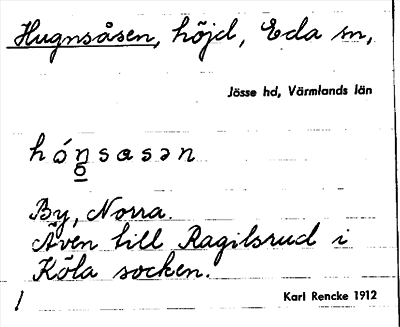 Hugnsåsen, höjd, Eda sn,
Jösse hd, Värmlands län
hó̱n̥sɑsən
By, Norra.
Även till Ragilsrud i
Köla socken.
/ Karl Rencke 1912